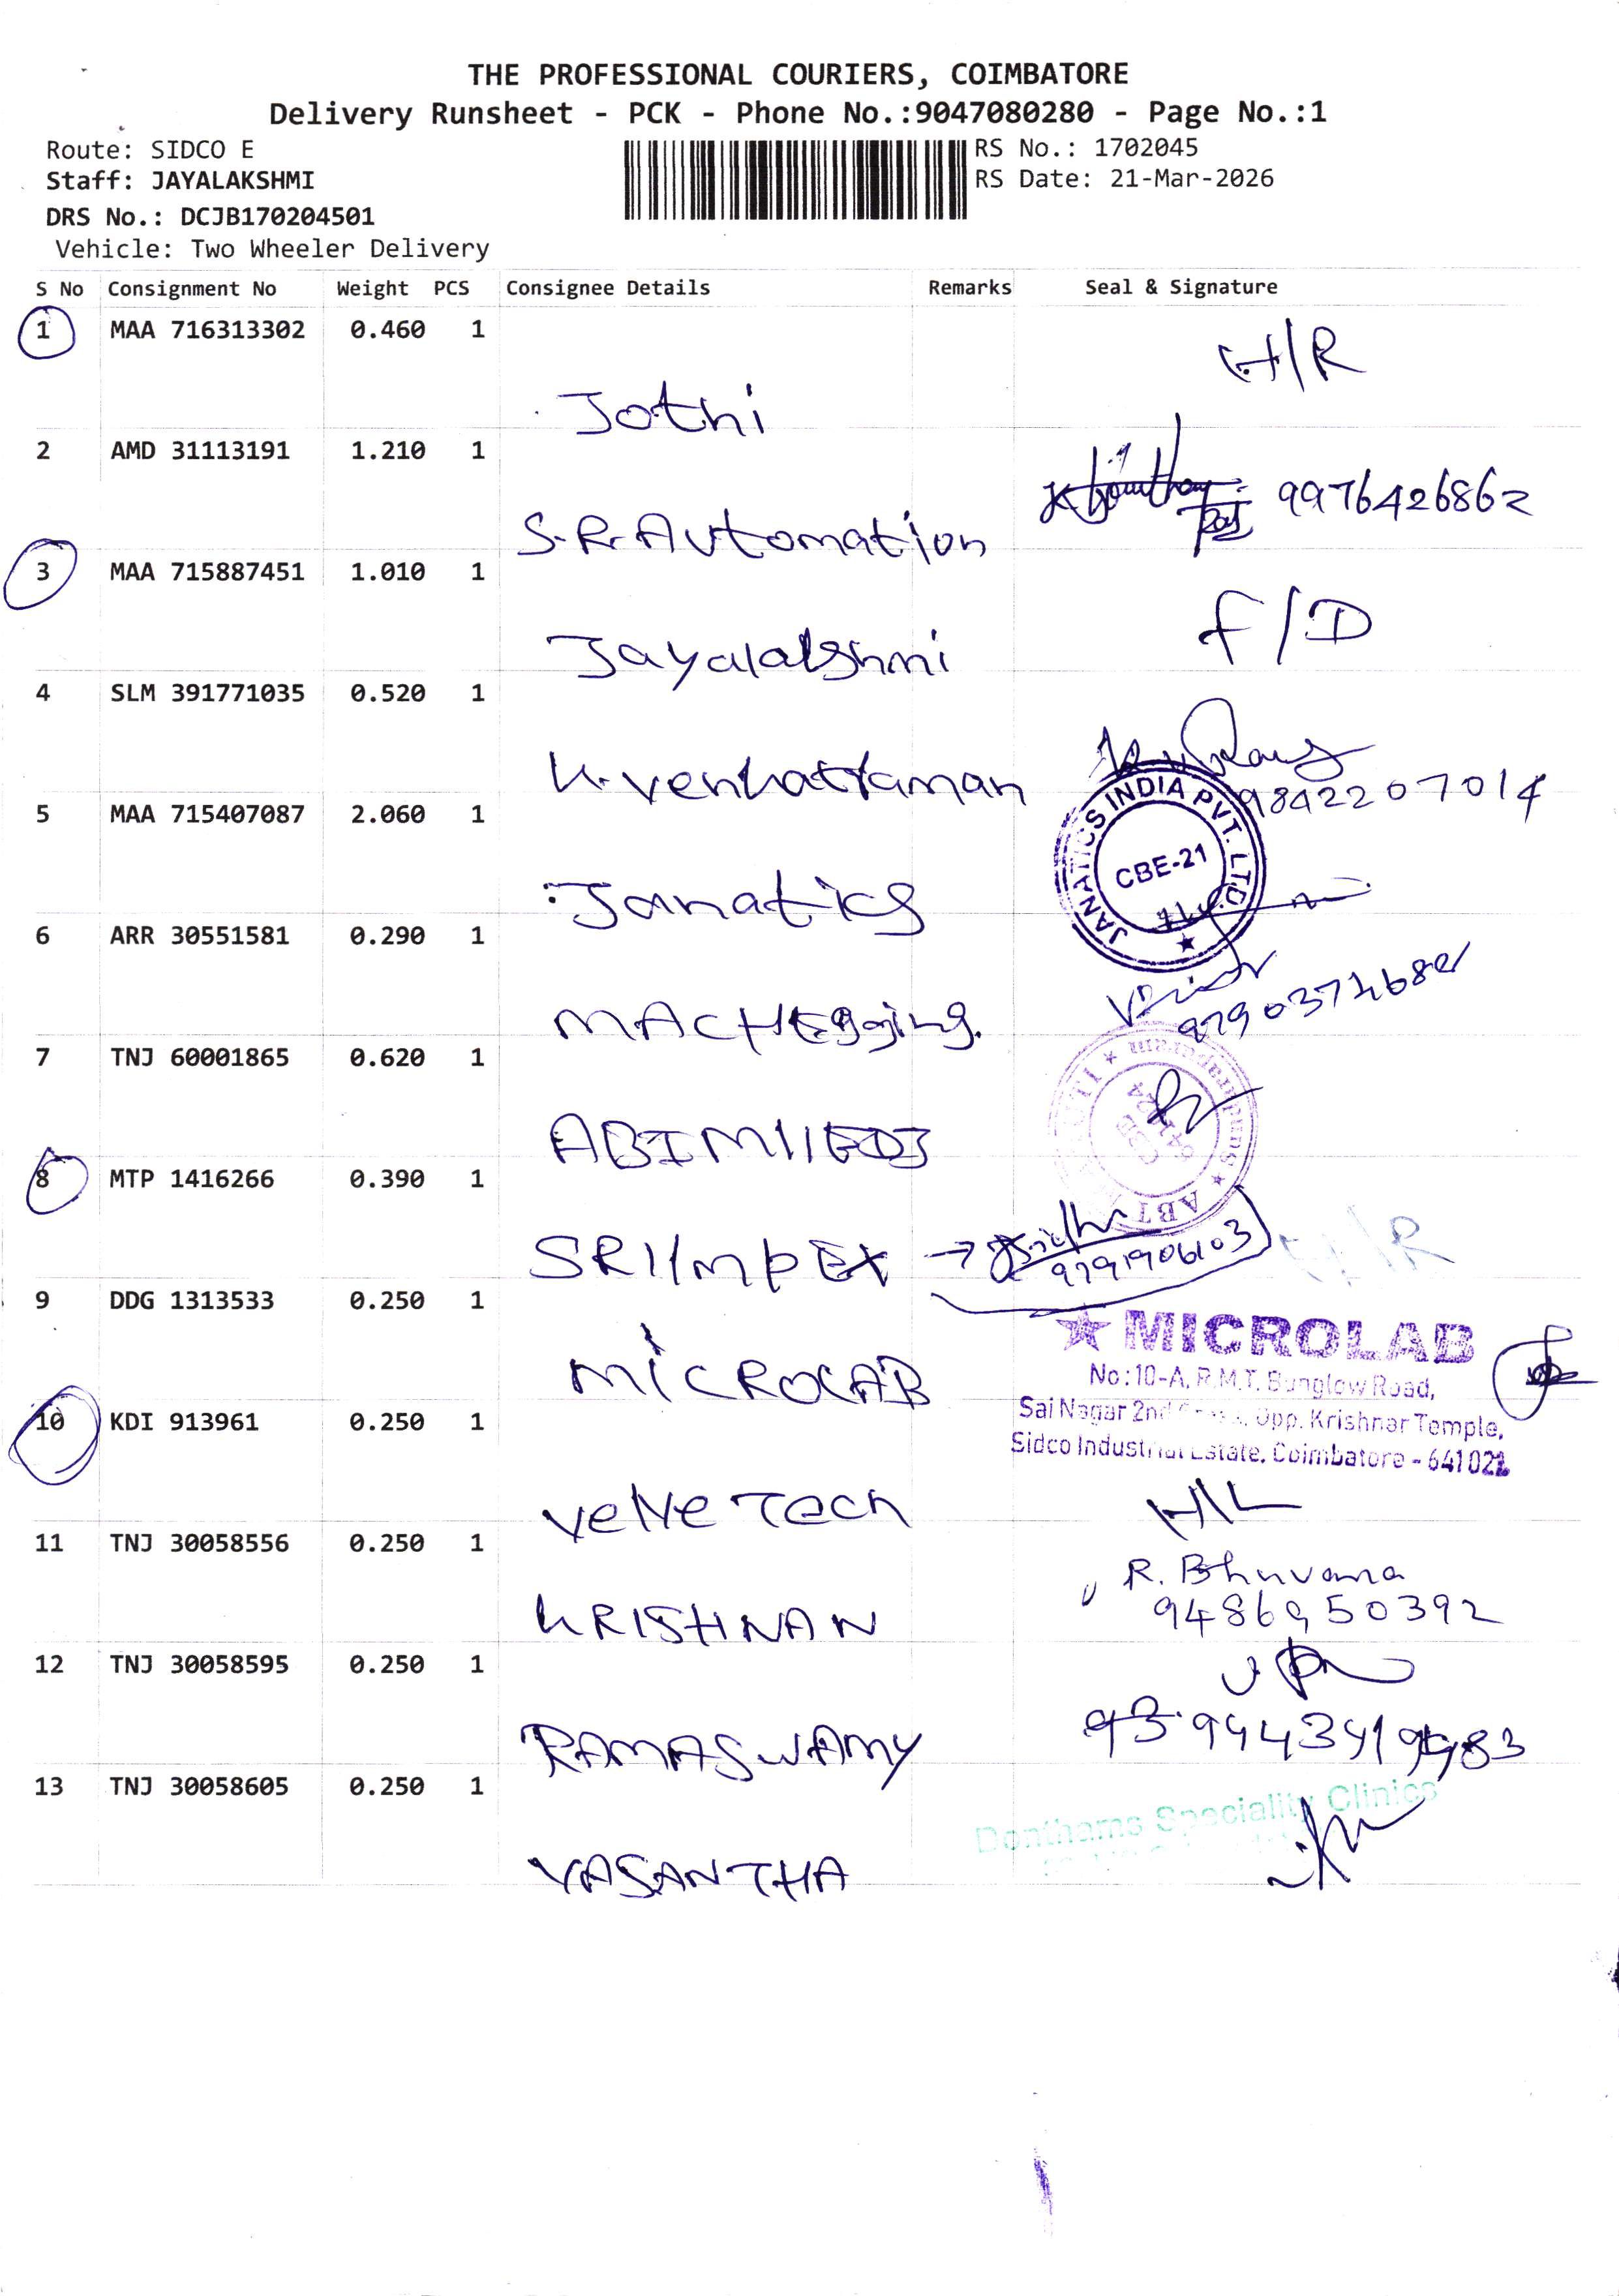 THE PROFESSIONAL COURIERS, COIMBATORE
Delivery Runsheet - PCK - Phone No.:9047080280 - Page No.:1
Route: SIDCO E
Staff: JAYALAKSHMI
DRS No.: DCJB170204501
Vehicle: Two Wheeler Delivery
RS No.: 1702045
RS Date: 21-Mar-2026
S No Consignment No Weight PCS Consignee Details Remarks Seal & Signature
1 MAA 716313302 0.460 1
H/R
Jothi
2 AMD 31113191 1.210 1
9976426862
S.R.Automation
3 MAA 715887451 1.010 1
F/D
Jayalakshmi
4 SLM 391771035 0.520 1
K.venkattaman
9842207014
5 MAA 715407087 2.060 1
JANATICS INDIA PVT. LTD.
CBE-21
Janatics
6 ARR 30551581 0.290 1
MACHEgging.
7 TNJ 60001865 0.620 1
8 MTP 1416266 0.390 1
SRI Impex → 9791906103
9 DDG 1313533 0.250 1
MICROLAB
No:10-A, R.M.T. Bunglow Road,
Sai Nagar 2nd Opp. Krishnar Temple,
Sidco Industrial Estate, Coimbatore - 641021
MICROLAB
10 KDI 913961 0.250 1
H/L
Velve Tech
11 TNJ 30058556 0.250 1
R. Bhuvana
9486950392
KRISHNAN
12 TNJ 30058595 0.250 1
RAMASWAMY
13 TNJ 30058605 0.250 1
Speciality Clinics
VASANTHA